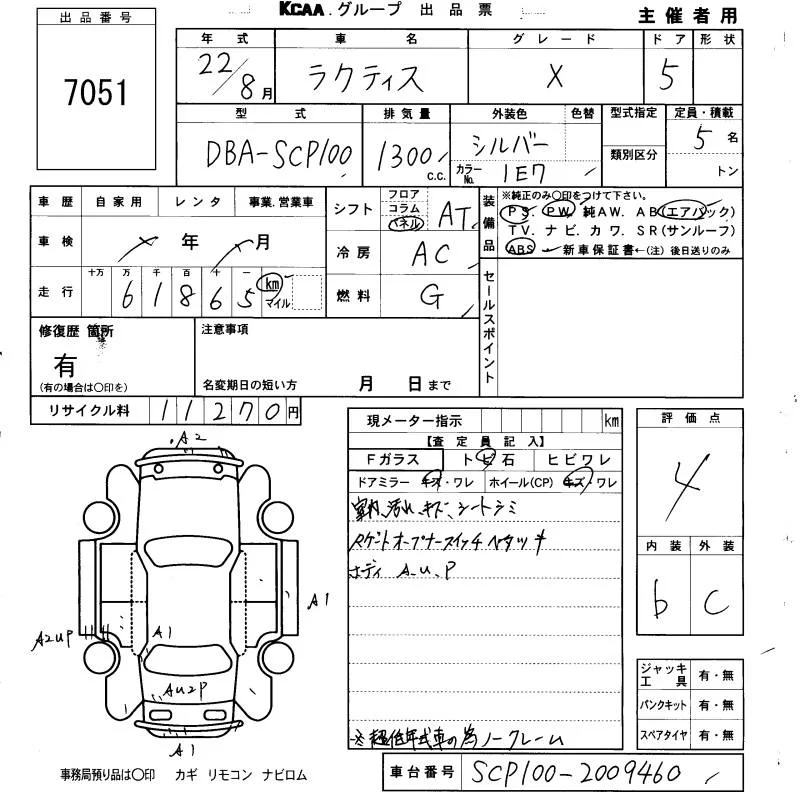 KCAA.グループ 出品票
主催者用
出品番号
7051
年式 車名 グレード ドア 形状
22/8月 ラクティス X 5
型式 排気量 外装色 色替 型式指定 定員・積載
DBA-SCP100 1300c.c. シルバー 5名
カラーNo. 1E7 類別区分 トン
車歴 自家用 レンタ 事業.営業車
車検 年 月
十万 万 千 百 十 一
走行 6 1 8 6 5 km マイル
シフト フロア コラム パネル AT
冷房 AC
燃料 G
装備品
※純正のみ○印をつけて下さい。
PS. PW. 純AW. AB(エアバック)
TV. ナビ. カワ. SR(サンルーフ)
ABS 新車保証書←(注)後日送りのみ
セールスポイント
修復歴 箇所
有
(有の場合は○印を)
注意事項
名変期日の短い方 月 日まで
リサイクル料 11270円
現メーター指示 km
【査定員記入】
Fガラス トビ石 ヒビワレ
ドアミラー キズ・ワレ ホイール(CP) キズ・ワレ
室内汚れ、キズ、シートシミ
ラゲットオープナースイッチベタツキ
ボディ A.U.P
※超低年式車の為ノークレーム
評価点
4
内装 外装
b C
ジャッキ工具 有・無
パンクキット 有・無
スペアタイヤ 有・無
A2
A1
A2UP
A1
AU2P
A1
事務局預り品は○印 カギ リモコン ナビロム
車台番号 SCP100-2009460